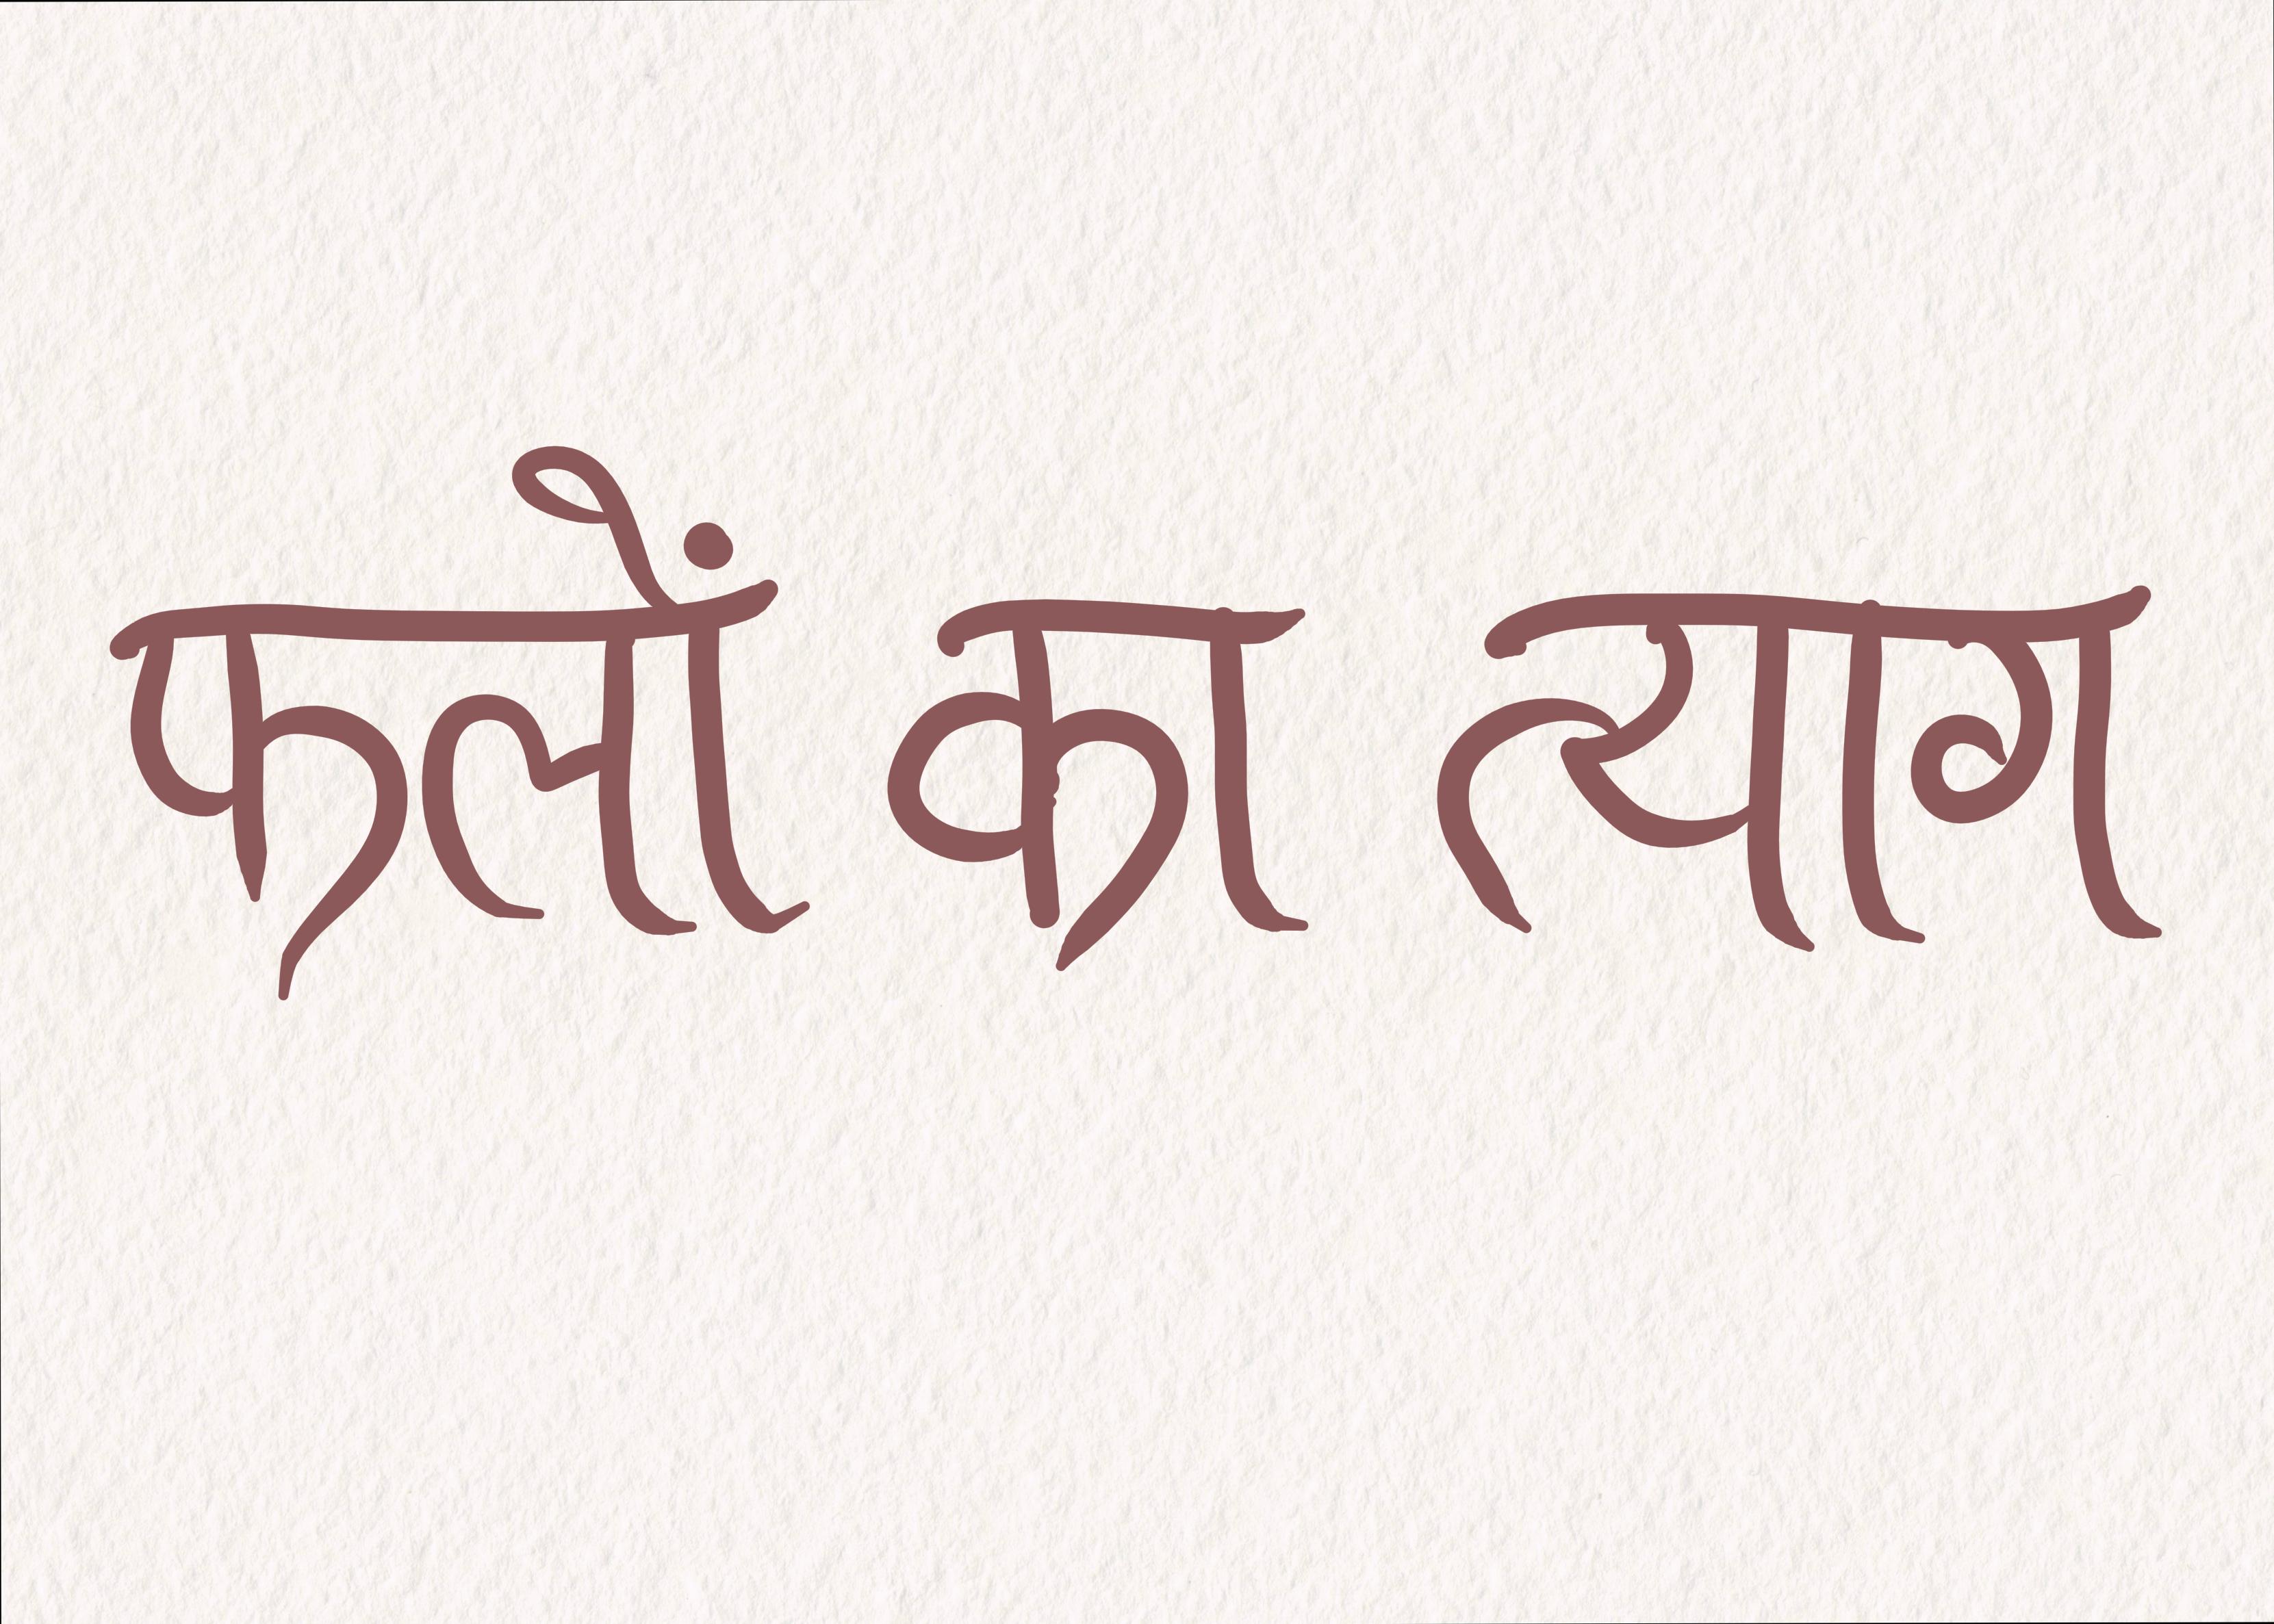 फलों का त्याग